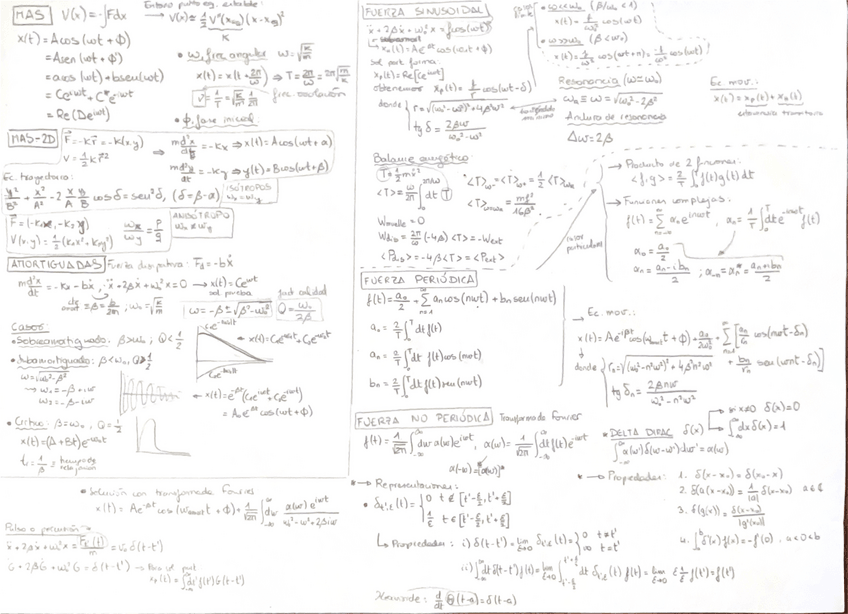 MAS V(x) = -∫Fdx
Entorno punto eq. estable:
→ V(x) ≈ 1/2 V''(x_eq)(x - x_eq)²
K
x(t) = A cos(ωt + ϕ)
= A sen(ωt + ϕ')
= a cos(ωt) + b sen(ωt)
= Ce^{iωt} + C*e^{-iωt}
= Re(De^{iωt})
• ω, frec. angular ω = √(k/m)
x(t) = x(t + 2π/ω) ⇒ T = 2π/ω = 2π√(m/k)
ν = 1/T = √(k/m) 1/2π
frec. oscilación
• ϕ, fase inicial
MAS-2D F = -kr = -k(x,y)
V = 1/2 k r²
⇒ m d²x/dt² = -kx ⇒ x(t) = A cos(ωt + α)
m d²y/dt² = -ky ⇒ y(t) = B cos(ωt + β)
Ec. trayectoria:
y²/B² + x²/A² - 2 x/A y/B cos δ = sen² δ, (δ = β - α)
ISÓTROPOS
ω_x = ω_y
V(x,y) = 1/2 (k_x x² + k_y y²)
ω_x/ω_y = p/q
ANISÓTROPO
ω_x ≠ ω_y
AMORTIGUADAS Fuerza disipativa: F_d = -bẋ
m d²x/dt² = -kx - bẋ, ẍ + 2βẋ + ω₀²x = 0 → x(t) = Ce^{iωt}
sol. prueba
β = b/2m; ω₀ = √(k/m)
ω = -β ± √(β² - ω₀²)
Fact. calidad
Q = ω₀/2β
Casos:
• Sobreamortiguado: β > ω₀, Q < 1/2
• Subamortiguado: β < ω₀, Q > 1/2
ω = √(ω₀² - β²)
→ ω₁ = -β + iω
ω₂ = -β - iω
← x(t) = e^{-βt}(C₁e^{iωt} + C₂e^{-iωt})
= A₀e^{-βt} cos(ωt + ϕ)
• Crítico: β = ω₀, Q = 1/2
x(t) = (A + Bt)e^{-ω₀t}
t_r = 1/β = tiempo de relajación
• Solución con transformada Fourier
x(t) = Ae^{-βt} cos(ω_amort t + ϕ) + 1/√2π ∫dω α(ω)e^{iωt} / (ω₀² - ω² + 2βiω)
Pulso o percusión →
ẍ + 2βẋ + ω₀²x = F(t)/m = v₀ δ(t - t')
G̈ + 2βĠ + ω₀²G = δ(t - t') → Para sol. part.
x_p(t) = ∫dt' f(t')G(t - t')
FUERZA SINUSOIDAL
ẍ + 2βẋ + ω₀²x = f cos(ωt)
x₀(t) = Ae^{-βt} cos(ωt + ϕ)
sol. part. forma:
x_p(t) = Re[Ce^{iωt}]
obtenemos x_p(t) = f/r cos(ωt - δ)
donde r = √((ω₀² - ω²)² + 4β²ω²)
tg δ = 2βω/(ω₀² - ω²)
• ω≪ω₀ (β/ω₀ < 1)
x(t) = f/ω₀² cos(ωt)
• ω≫ω₀ (β < ω₀)
x(t) = f/ω² cos(ωt + π) = -f/ω² cos(ωt)
Resonancia (ω = ω₀)
ω_R ≡ ω = √(ω₀² - 2β²)
Anchura de resonancia
Δω = 2β
Ec. mov.:
x(t) = x_p(t) + x_h(t)
estacionario transitorio
Balance energético
T = 1/2 mẋ²
<T> = ω/2π ∫₀^{2π/ω} dt T
• <T>_{ω-} = <T>_{ω+} = 1/2 <T>_{max}
<T>_{ω=ω₀} = mf²/16β²
W_muelle = 0
W_dis = 2π/ω (-4β)<T> = -W_ext
<P_dis> = -4β<T> = <P_ext>
→ Producto de 2 funciones:
<f,g> = 2/T ∫₀^T f(t)g(t) dt
→ Funciones complejas:
f(t) = Σ α_n e^{inωt}, α_n = 1/T ∫₀^T dt e^{-inωt} f(t)
α₀ = a₀/2
α_n = (a_n - ib_n)/2; α_{-n} = α_n* = (a_n + ib_n)/2
FUERZA PERIÓDICA
f(t) = a₀/2 + Σ_{n=1}^∞ a_n cos(nωt) + b_n sen(nωt)
a₀ = 2/T ∫₀^T dt f(t)
a_n = 2/T ∫₀^T dt f(t) cos(nωt)
b_n = 2/T ∫₀^T dt f(t) sen(nωt)
→ Ec. mov.:
x(t) = Ae^{-βt} cos(ω_amort t + ϕ) + a₀/2ω₀² + Σ_{n=1}^∞ [a_n/r_n cos(nωt - δ_n) + b_n/r_n sen(nωt - δ_n)]
donde r_n = √((ω₀² - n²ω²)² + 4β²n²ω²)
tg δ_n = 2βnω/(ω₀² - n²ω²)
FUERZA NO PERIÓDICA Transformada de Fourier
f(t) = 1/√2π ∫dω α(ω)e^{iωt}, α(ω) = 1/√2π ∫dt f(t)e^{-iωt}
α(-ω) = [α(ω)]*
* DELTA DIRAC δ(x) → si x≠0 δ(x) = 0
→ ∫dx δ(x) = 1
∫α(ω')δ(ω - ω')dω' = α(ω)
* → Representaciones:
• δ_{t',ε}(t) = { 0 t ∉ [t' - ε/2, t' + ε/2]
1/ε t ∈ [t' - ε/2, t' + ε/2]
↳ Propiedades: i) δ(t - t') = lim_{ε→0} δ_{ε,t'}(t) = { 0 t ≠ t'
∞ t = t'
ii) ∫dt δ(t - t') f(t) = lim_{ε→0} ∫_{t'-ε/2}^{t'+ε/2} dt δ_{t',ε}(t) f(t) = lim_{ε→0} ε 1/ε f(t') = f(t')
* → Propiedades: 1. δ(x - x₀) = δ(x₀ - x)
2. δ(a(x - x₀)) = 1/|a| δ(x - x₀)
3. δ(g(x)) = δ(x - x₀)/|g'(x₀)|
4. ∫_a^b δ'(x) f(x) = -f'(0), a < 0 < b
Heaviside: d/dt Θ(t - a) = δ(t - a)